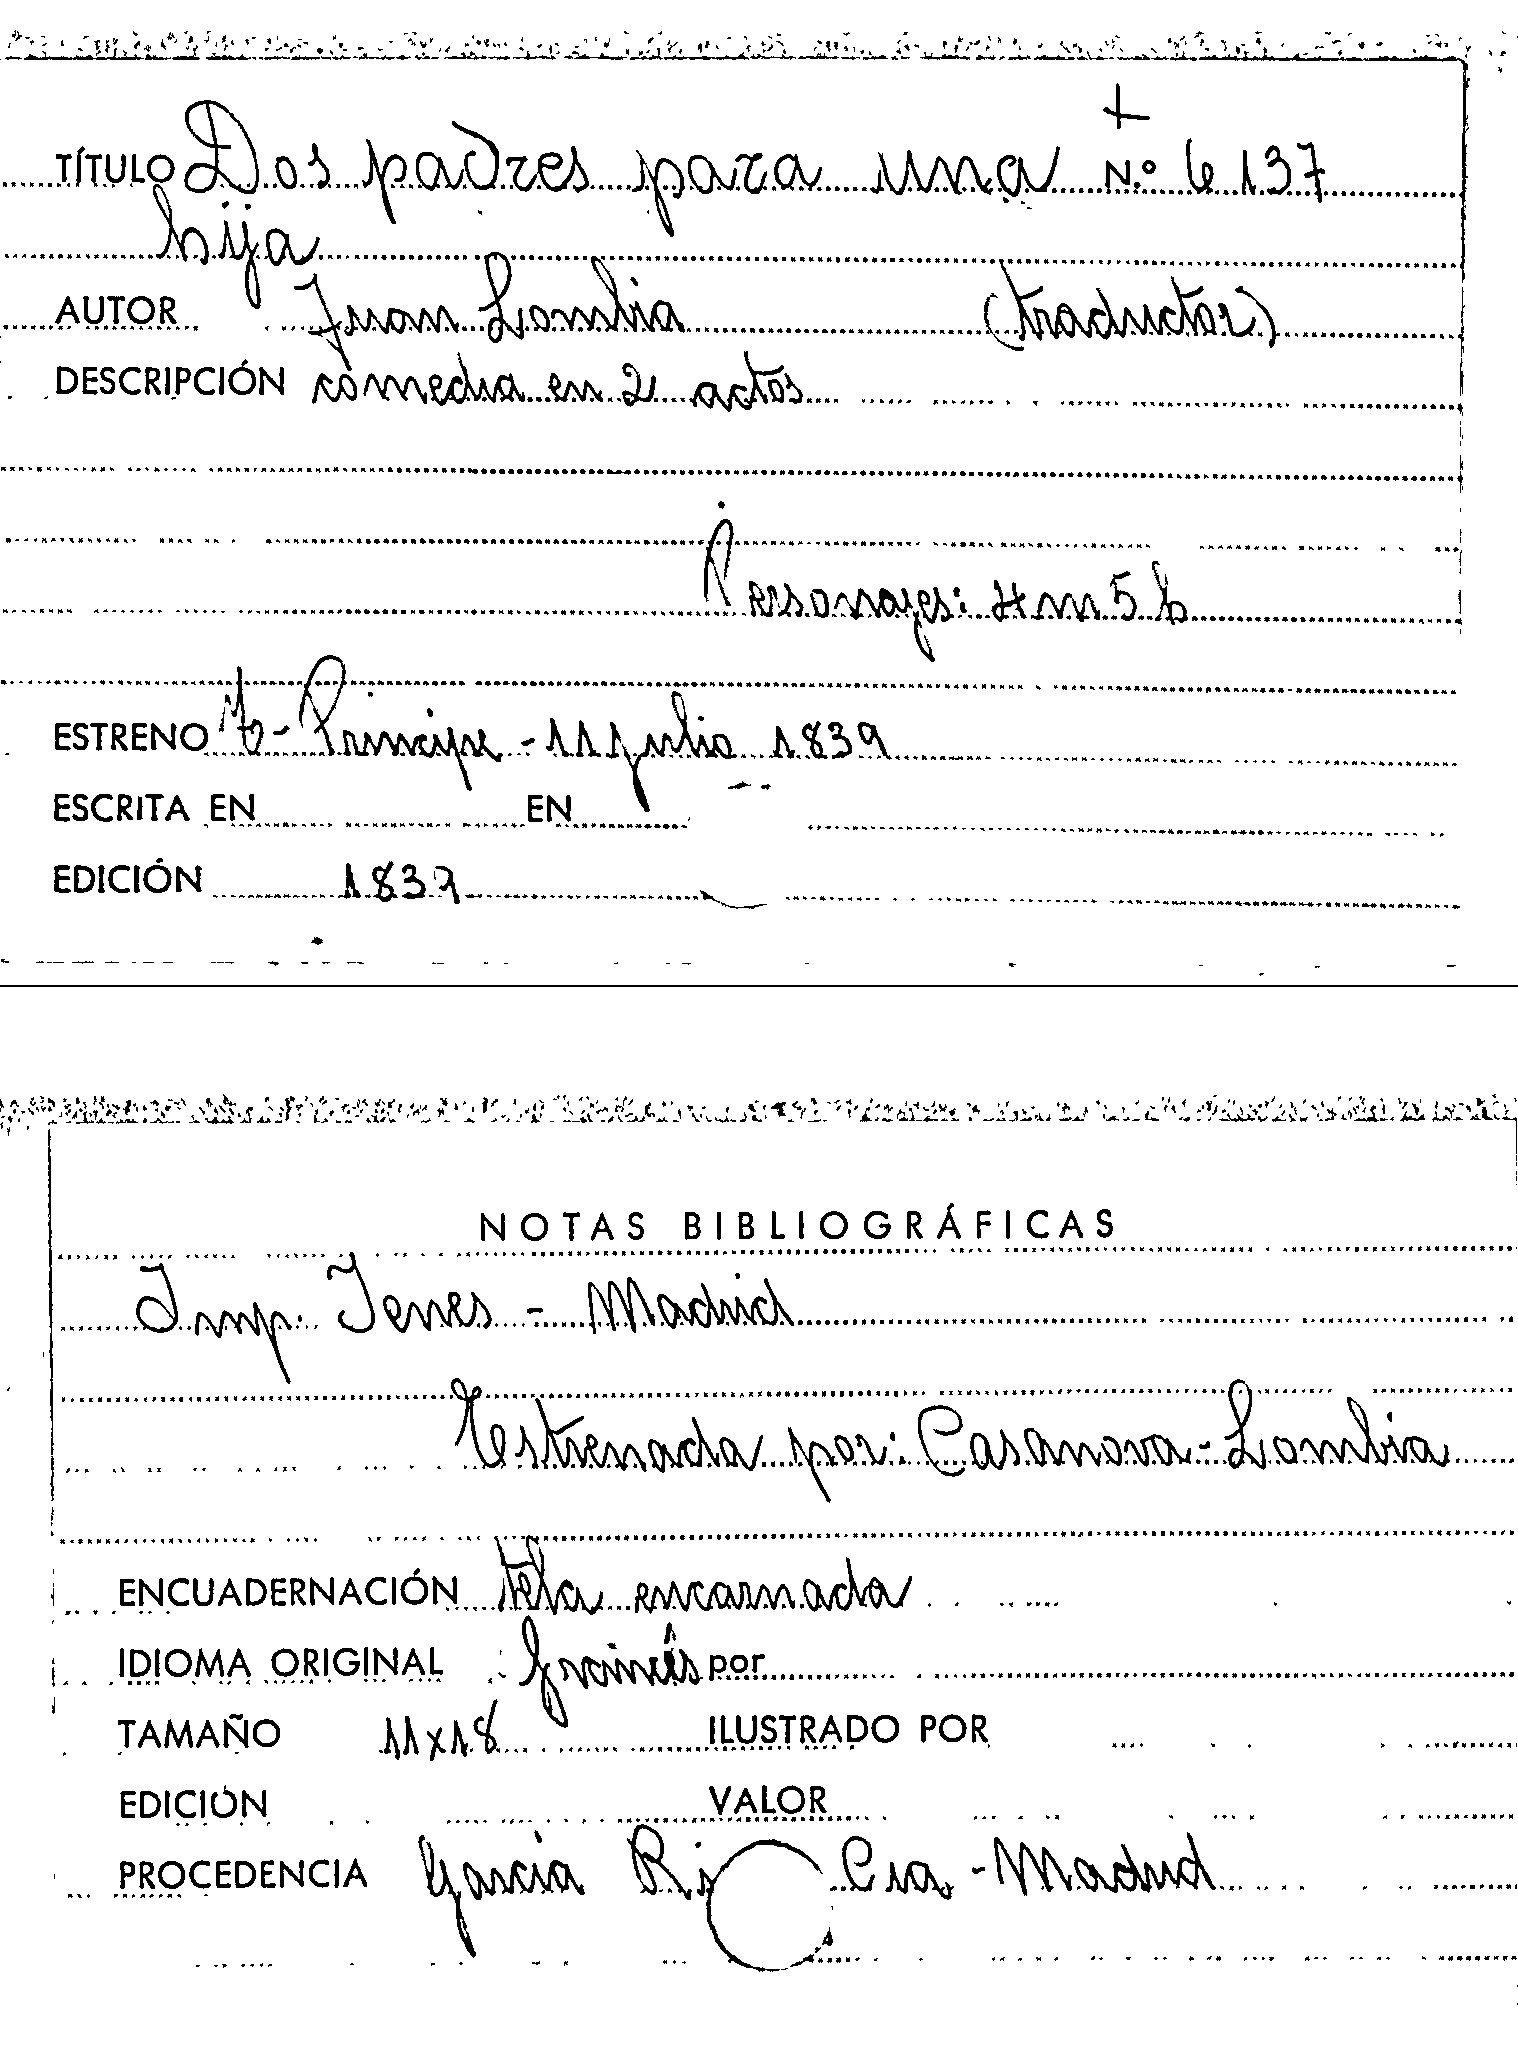 +
TÍTULO Dos padres para una N.º 6137
hija
AUTOR Juan Lombia (traductor)
DESCRIPCIÓN comedia en 2 actos
Personajes: 4 m 5 h
ESTRENO To- Principe - 11 julio 1839
ESCRITA EN EN
EDICIÓN 1839
NOTAS BIBLIOGRÁFICAS
Imp. Yenes - Madrid
Estrenada por: Casanova - Lombia
ENCUADERNACIÓN tela encarnada
IDIOMA ORIGINAL francés por
TAMAÑO 11x18 ILUSTRADO POR
EDICIÓN VALOR
PROCEDENCIA García Ri Cia - Madrid